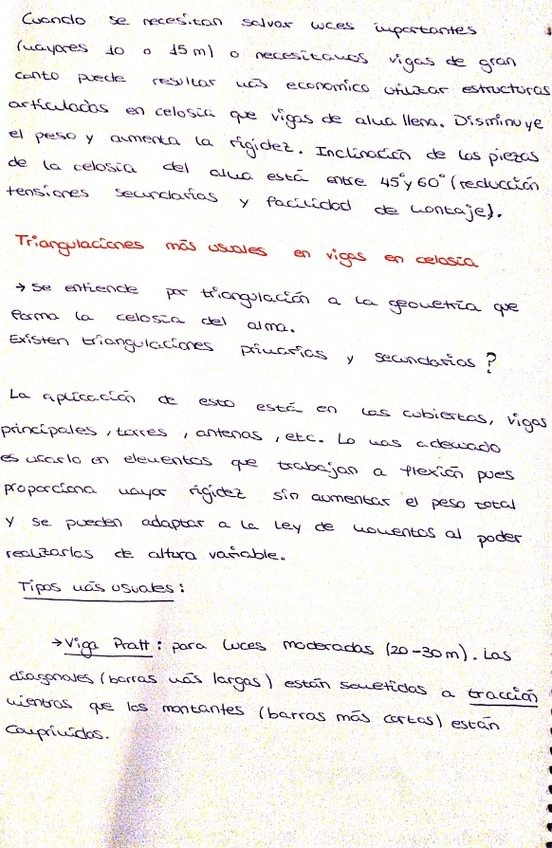 Cuando se necesitan salvar luces importantes
(mayores 10 o 15 m) o necesitamos vigas de gran
canto puede resultar más economico utilizar estructuras
articuladas en celosía que vigas de alma llena. Disminuye
el peso y aumenta la rigidez. Inclinación de las piezas
de la celosía del alma está entre 45° y 60° (reducción
tensiones secundarias y facilidad de montaje).
Triangulaciones más usuales en vigas en celosía
→ Se entiende por triangulación a la geometría que
forma la celosía del alma.
Existen triangulaciones primarias y secundarias ?
La aplicación de esto está en las cubiertas, vigas
principales, torres, antenas, etc. Lo mas adecuado
es usarlo en elementos que trabajan a flexión pues
proporciona mayor rigidez sin aumentar el peso total
y se pueden adaptar a la ley de momentos al poder
realizarlas de altura variable.
Tipos más usuales:
→ Viga Pratt: para luces moderadas (20-30m). Las
diagonales (barras más largas) están sometidas a tracción
mientras que los montantes (barras más cortas) están
comprimidas.